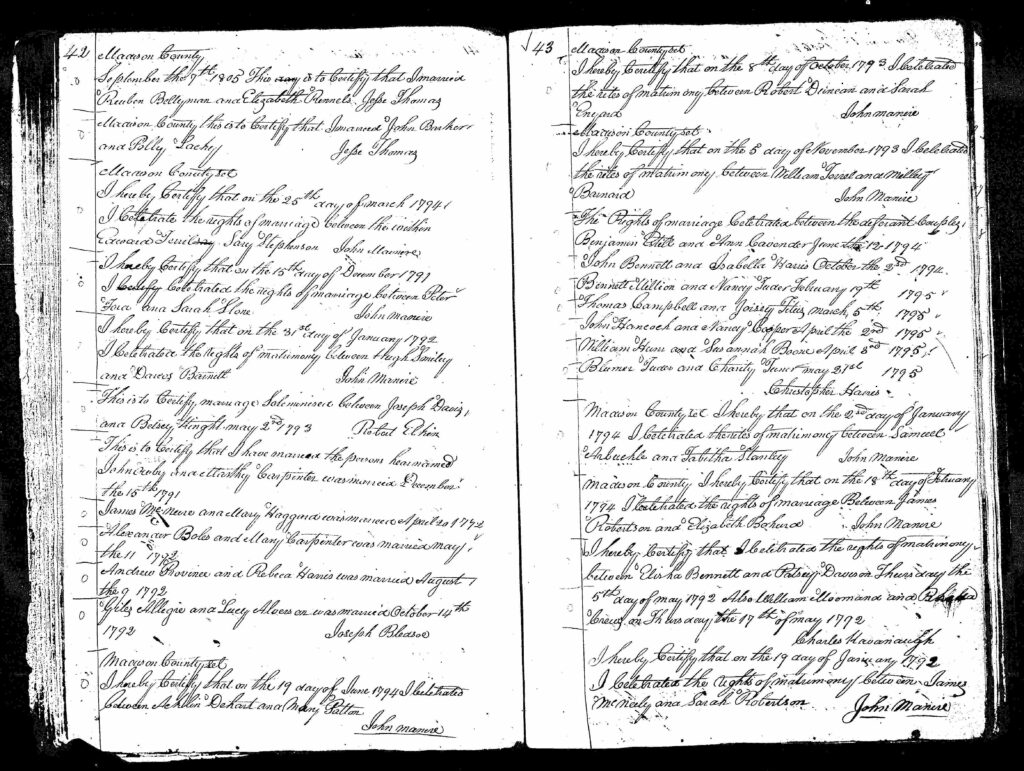 42
Madison County
September the 7th 1805 This day is to Certify that I married
Reuben Bellyman and Elizabeth Rennels Jesse Thomas
Madison County this is to Certify that I married John Bruker
and Polly Lachy Jesse Thomas
Madison County sct
I hereby Certify that on the 25th day of march 1794
I Celebrate the rights of marriage between the within
Edward Sary Stephenson John Maniere
I hereby Certify that on the 15th day of December 1791
I Certify Celebrated the rights of marriage between Peter
Ford and Sarah Stone John Manire
I hereby Certify that on the 31st day of January 1792
I Celebrated the rights of matrimony between Hugh Smiley
and Darcus Barnett John Manire
This is to Certify marriage Soleminised between Joseph Daviz
and Betsey Hinght may 2nd 1793 Robert Elkin
This is to Certify that I have married the persons hear named
John and Carpenter was married December
the 15th 1791
James and Mary Haggard was married April 20 1792
Alexander Boles and Mary Carpenter was married may
the 11 1792
Andrew Bovinee and Rebeca Harris was married August
the 9 1792
Giles Allegie and Lucy was married October 14th
1792 Joseph Bledsoe
Madison County sct
I hereby Certify that on the 19 day of June 1794 I Celebrated
between Dehart and Mary John Manire
43
Madison County sct
I hereby Certify that on the 8th day of October 1793 I Celebrated
the rites of matrimony between Robert Duncan and Sarah
Enyard John Manire
Madison County sct
I hereby Certify that on the 5 day of November 1793 I Celebrated
the rites of matrimony between William and Milley
Barnard John Manire
The Rights of marriage Celebrated between the deferant Couples
Benjamin and Ann Cavender June the 12 1794
John Bennett and Isabella Harris October the 2nd 1794
Bennett Million and Nancy Tuder February 19th 1795
Thomas Campbell and march 5th 1795
John Hancock and Nancy Cooper April the 2nd 1795
William and Savannah Boone April 3rd 1795
Blumer Tuder and Charity Turner may 21st 1795
Christopher Harris
Madison County sct I hereby that on the 2nd day of January
1794 I Celebrated the rites of matrimony between Samuel
Arbuckle and Tabitha Stanley John Manire
Madison County I hereby Certify that on the 18th day of February
1794 I Celebrated the rights of marriage Between James
Robertson and Elizabeth John Manire
I hereby Certify that I Celebrated the rights of matrimony
between Elisha Bennett and Patsey Dawson Thursday the
5th day of may 1792 Also William Moomand and
Crews on Thursday the 17th of may 1792
Charles Kavanaulgh
I hereby Certify that on the 19 day of January 1792
I Celebrated the rights of matrimony between James
McNealy and Sarah Robertson John Manire